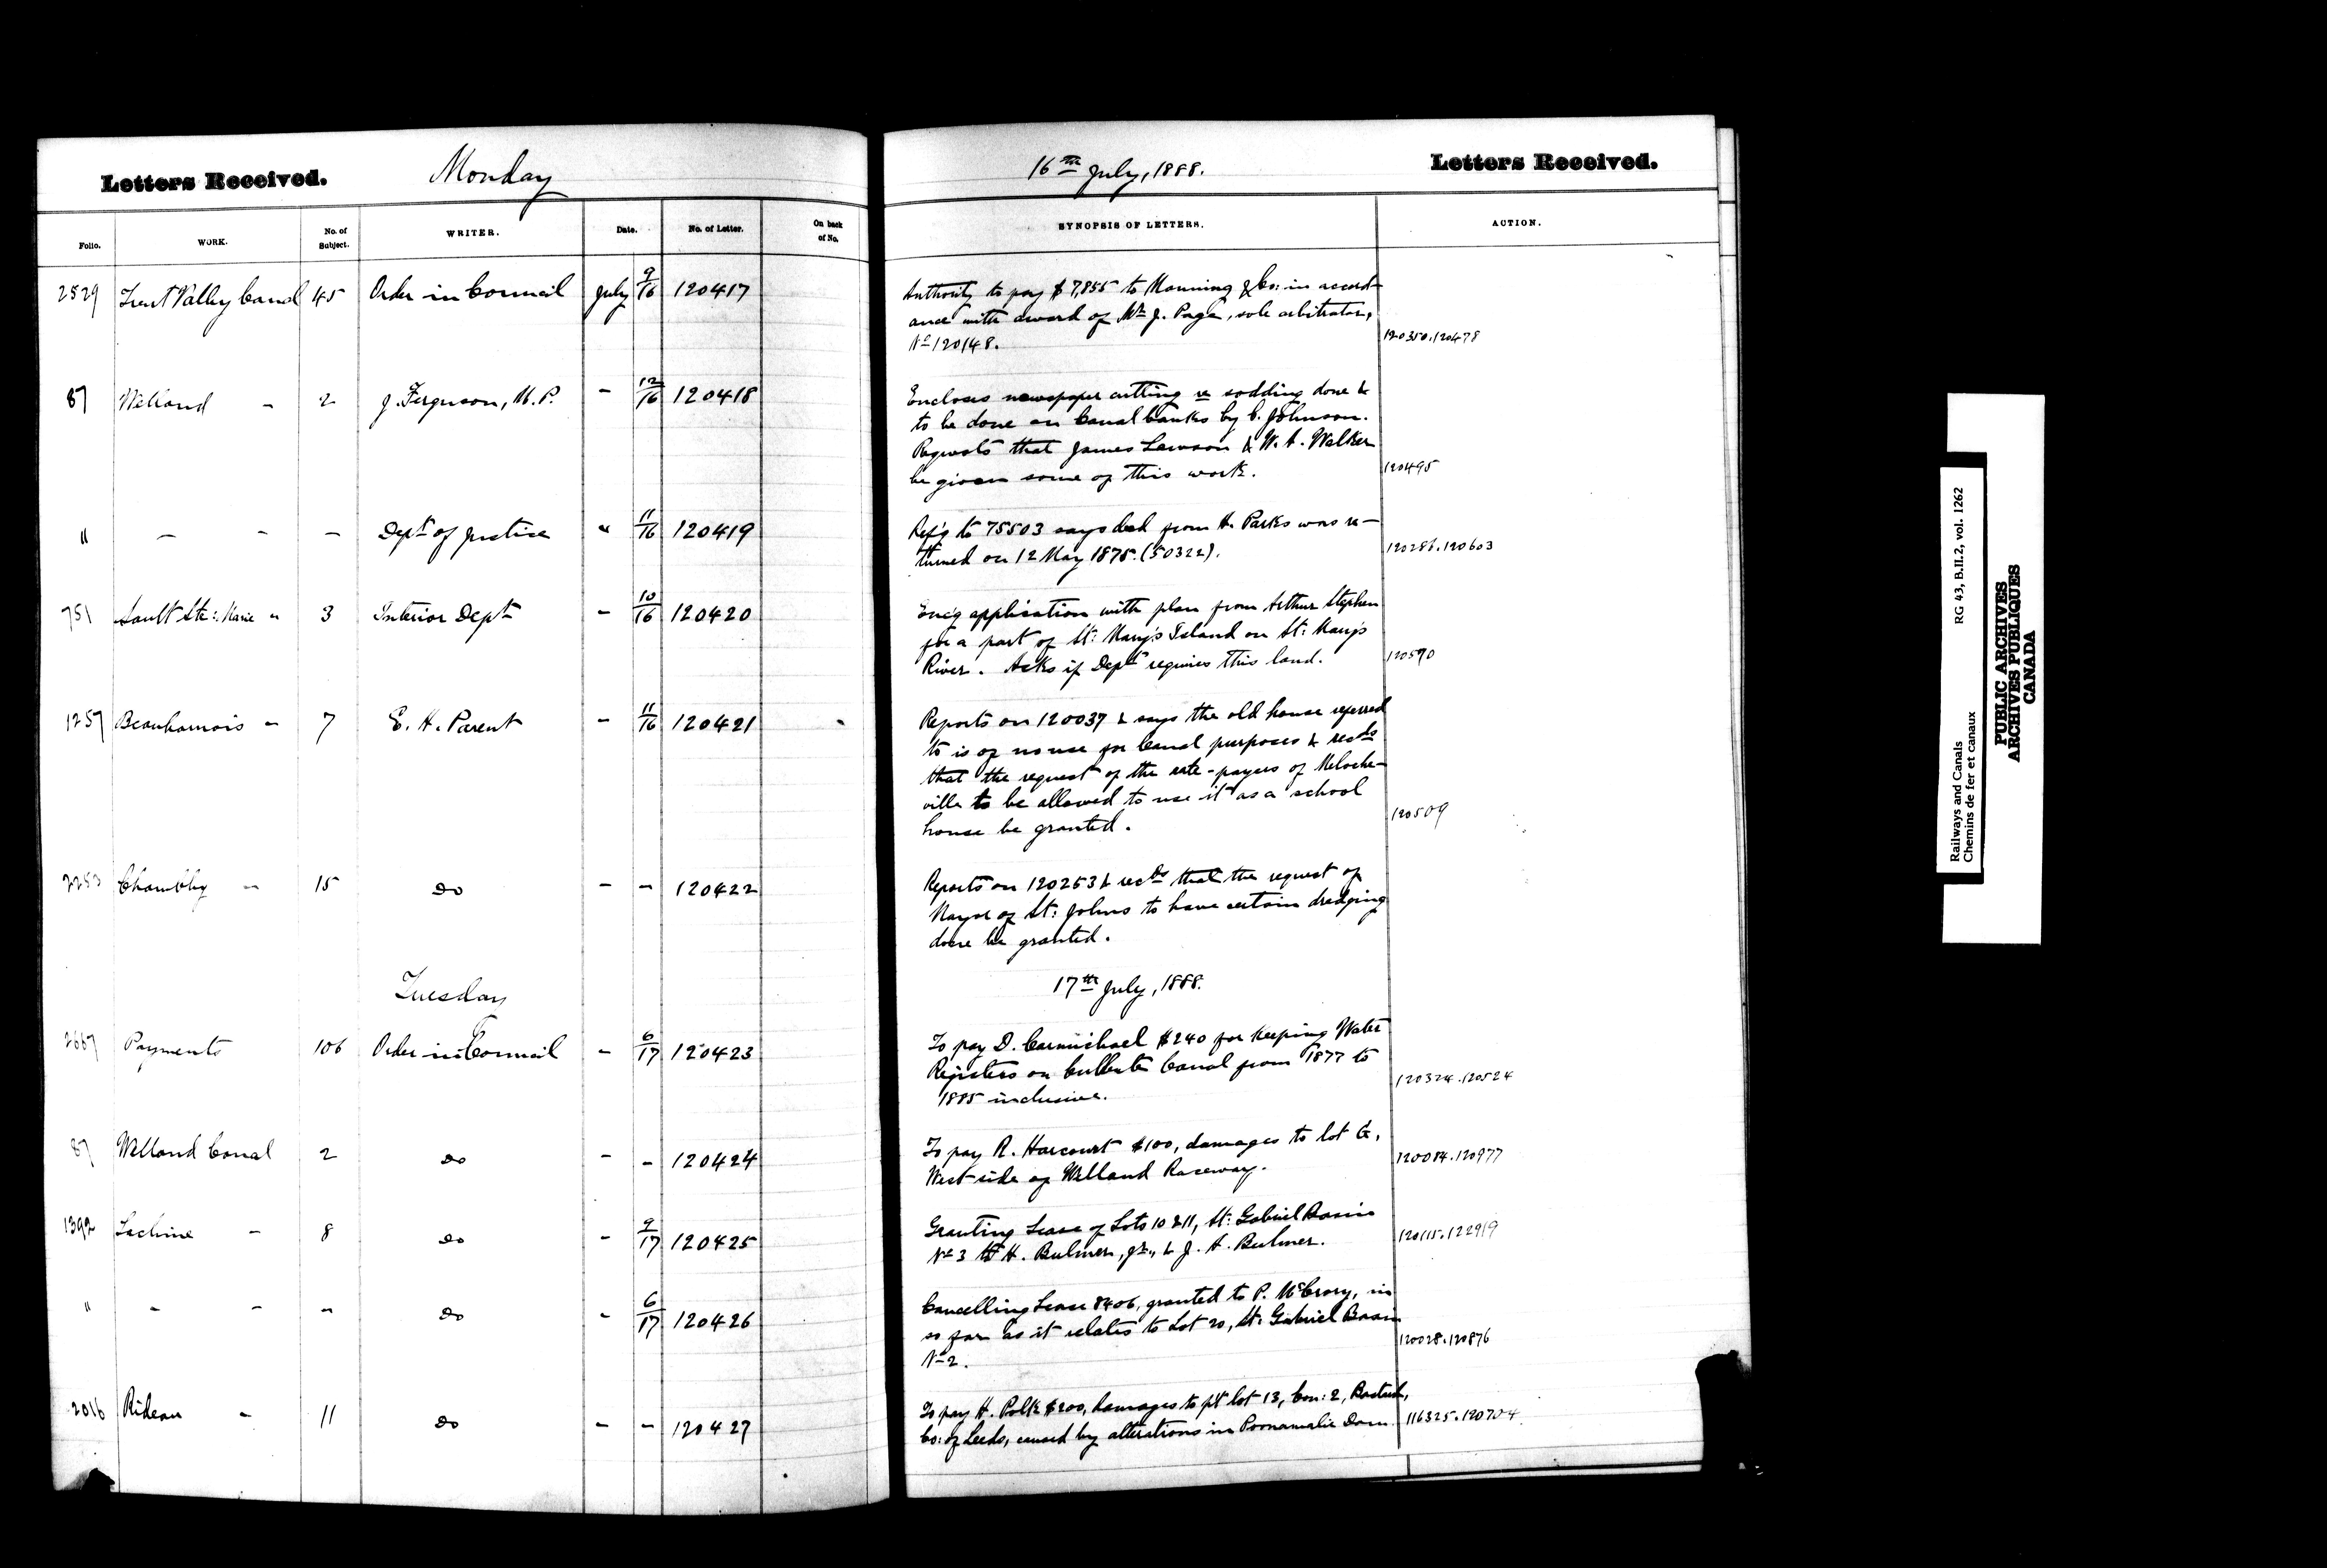 Letters Received. Monday
16th July, 1888. Letters Received.
Folio. WORK. No. of Subject. WRITER. Date. No. of Letter. On back of No. SYNOPSIS OF LETTERS. ACTION.
2529 Trent Valley Canal 45 Order in Council July 9/16 120417
Authority to pay $7,855 to Manning & Co: in accord-
ance with award of Mr J. Page, sole arbitrator,
No 120148. 120350.120478
87 Welland - 2 J. Ferguson, M.P. - 12/16 120418
Encloses newspaper cutting re sodding done &
to be done on Canal banks by C. Johnson.
Requests that James Lawson & W. A. Walker
be given some of this work. 120495
" - - - Dept of Justice " 11/16 120419
Ref'g to 75503 says deed from H. Parks was re-
turned on 12 May 1875. (50322). 120286.120603
751 Sault Ste: Marie " 3 Interior Dept - 10/16 120420
Enc'g application with plan from Arthur Stephen
for a part of St: Mary's Island on St: Mary's
River. Asks if Dept requires this land. 120590
1257 Beauharnois - 7 E. H. Parent - 11/16 120421
Reports on 120037 & says the old house referred
to is of no use for Canal purposes & recds
that the request of the rate-payers of Meloche-
ville to be allowed to use it as a school
house be granted. 120509
2253 Chambly - 15 Do - - 120422
Reports on 120253 & recds that the request of
Mayor of St: Johns to have certain dredging
done be granted.
Tuesday 17th July, 1888.
2667 Payments 106 Order in Council - 6/17 120423
To pay D. Carmichael $240 for keeping Water
Registers on Culbute Canal from 1877 to
1885 inclusive. 120324.120524
87 Welland Canal 2 Do - - 120424
To pay R. Harcourt $100, damages to lot G,
West side of Welland Raceway. 120084.120977
1392 Lachine - 8 Do - 9/17 120425
Granting Lease of Lots 10 & 11, St: Gabriel Basin
No 3 to H. Bulmer, Jr., & J. A. Bulmer. 120115.122919
" - - - Do - 6/17 120426
Cancelling Lease 8406, granted to P. McCrory, in
so far as it relates to Lot 20, St: Gabriel Basin
No 2. 120028.120876
2016 Rideau - 11 Do - - 120427
To pay H. Polk $200, damages to pt lot 13, Con: 2, Bastard,
Co: of Leeds, caused by alterations in Poonamalie Dam. 116325.120704
Railways and Canals RG 43, B.II.2, vol. 1262
Chemins de fer et canaux
PUBLIC ARCHIVES
ARCHIVES PUBLIQUES
CANADA